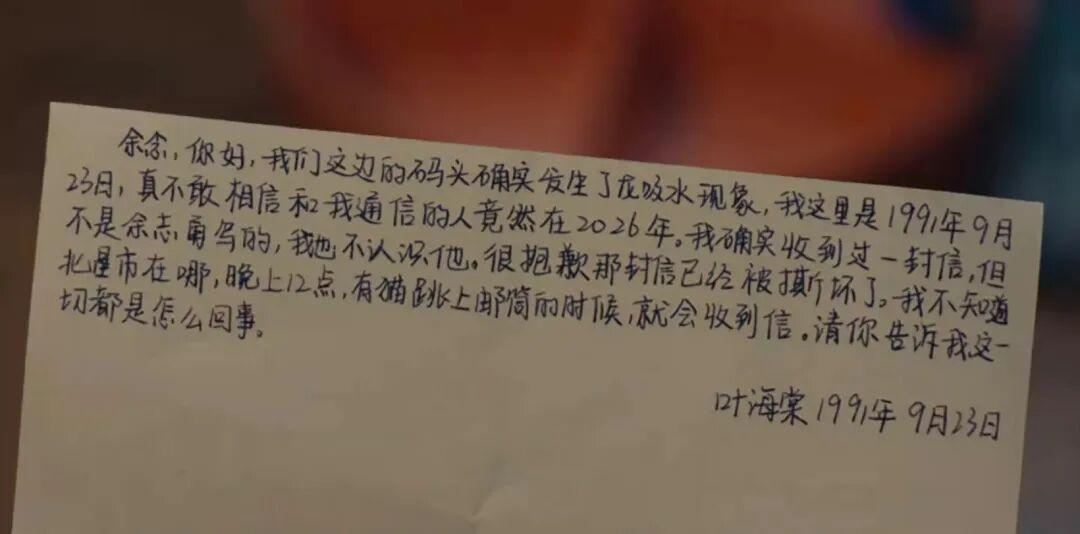 余念，你好，我们这边的码头确实发生了龙吸水现象，我这里是1991年9月
23日，真不敢相信和我通信的人竟然在2026年。我确实收到过一封信，但
不是余志勇写的，我也不认识他。很抱歉那封信已经被撕坏了。我不知道
北星市在哪，晚上12点，有猫跳上邮筒的时候，就会收到信。请你告诉我这一
切都是怎么回事。
叶海棠 1991年9月23日